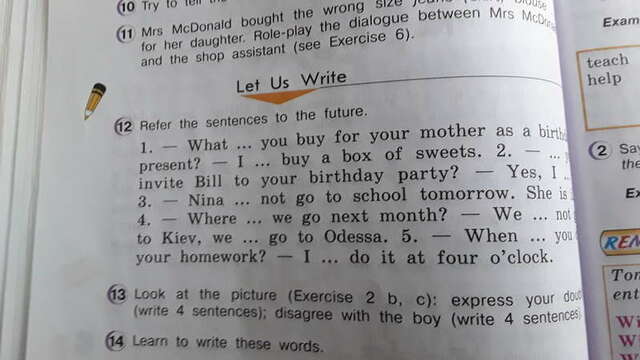 10 Try to tell the
11 Mrs McDonald bought the wrong size jeans blouse
for her daughter. Role-play the dialogue between Mrs McDon
and the shop assistant (see Exercise 6).
Let Us Write
12 Refer the sentences to the future.
1. — What ... you buy for your mother as a birth
present? — I ... buy a box of sweets. 2. — ...
invite Bill to your birthday party? — Yes, I ...
3. — Nina ... not go to school tomorrow. She is
4. — Where ... we go next month? — We ... not
to Kiev, we ... go to Odessa. 5. — When ... you
your homework? — I ... do it at four o'clock.
13 Look at the picture (Exercise 2 b, c): express your dou
(write 4 sentences); disagree with the boy (write 4 sentences)
14 Learn to write these words.
Exam
teach
help
2 Say
the
Ex
REM
Tom
ent
Wi
W